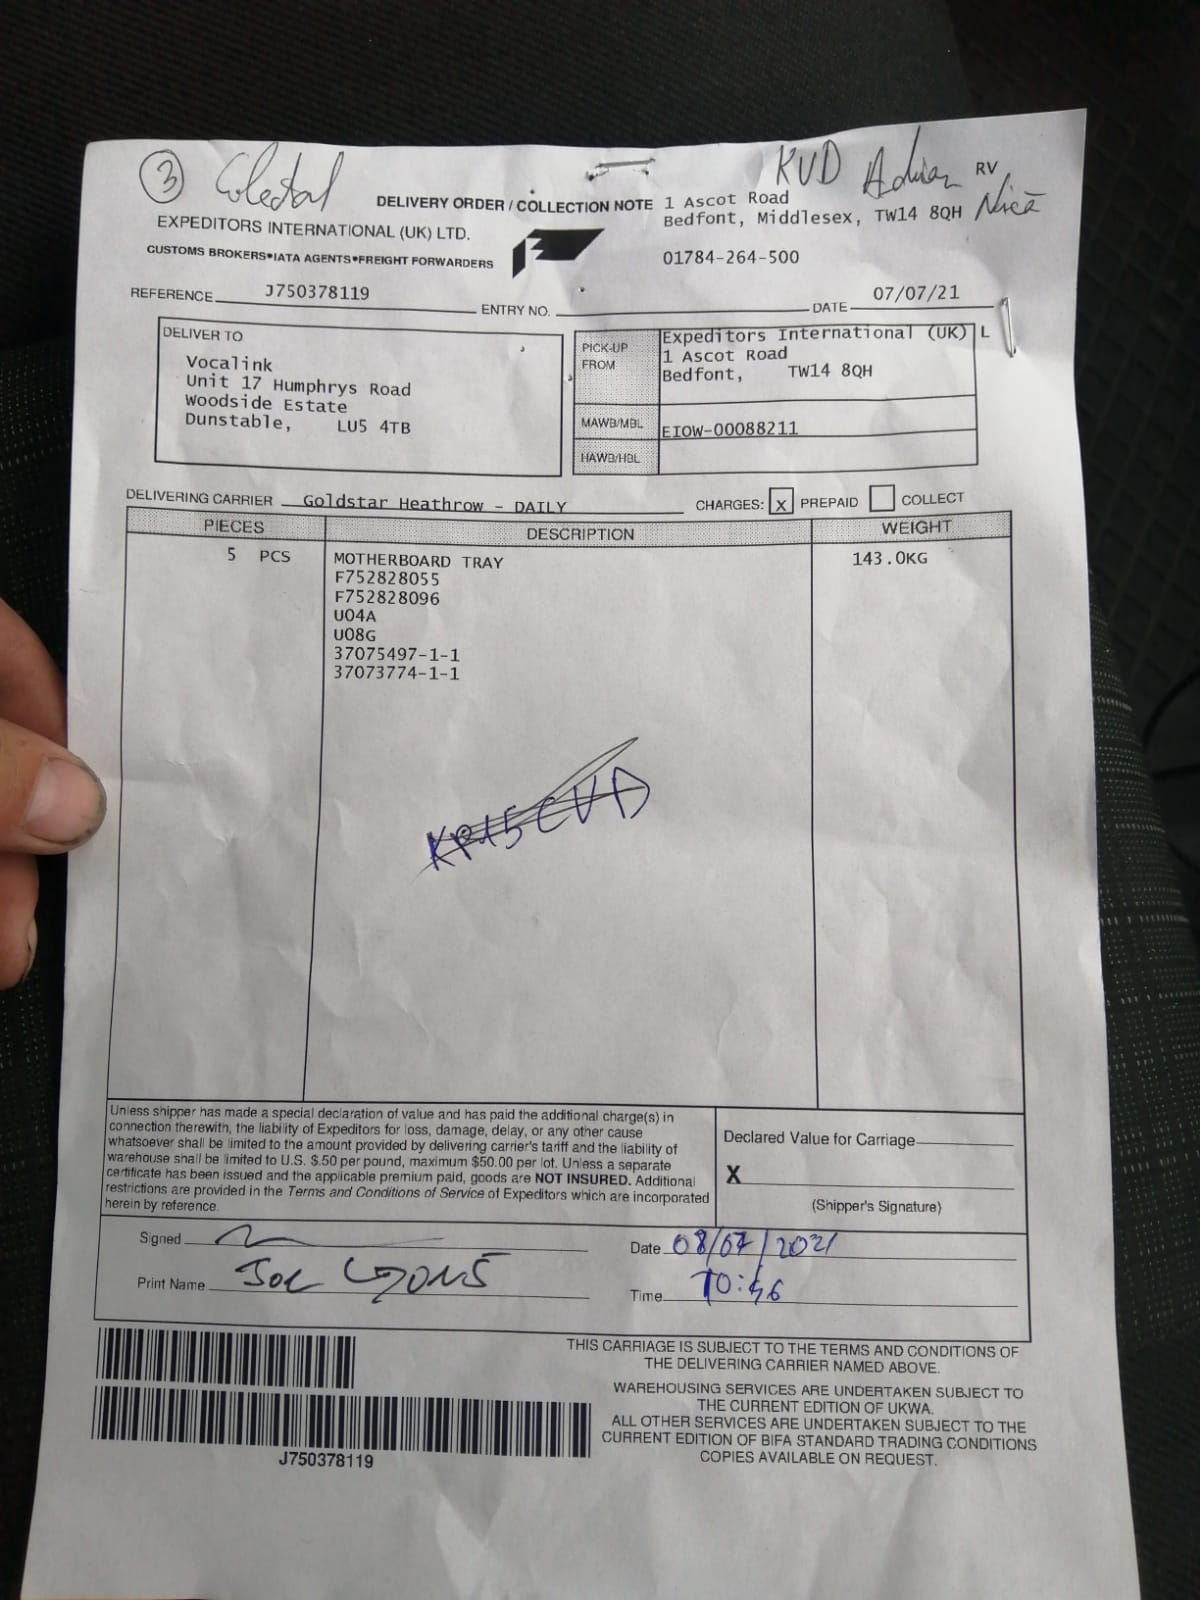 3 KVD Adrian RV
DELIVERY ORDER / COLLECTION NOTE 1 Ascot Road
Bedfont, Middlesex, TW14 8QH Nică
EXPEDITORS INTERNATIONAL (UK) LTD.
CUSTOMS BROKERS•IATA AGENTS•FREIGHT FORWARDERS
01784-264-500
REFERENCE J750378119 ENTRY NO. DATE 07/07/21
DELIVER TO
Vocalink
Unit 17 Humphrys Road
Woodside Estate
Dunstable, LU5 4TB
PICK-UP FROM
Expeditors International (UK) L
1 Ascot Road
Bedfont, TW14 8QH
MAWB/MBL EIOW-00088211
HAWB/HBL
DELIVERING CARRIER Goldstar Heathrow - DAILY CHARGES: x PREPAID COLLECT
PIECES DESCRIPTION WEIGHT
5 PCS MOTHERBOARD TRAY 143.0KG
F752828055
F752828096
U04A
U08G
37075497-1-1
37073774-1-1
Unless shipper has made a special declaration of value and has paid the additional charge(s) in
connection therewith, the liability of Expeditors for loss, damage, delay, or any other cause
whatsoever shall be limited to the amount provided by delivering carrier's tariff and the liability of
warehouse shall be limited to U.S. $.50 per pound, maximum $50.00 per lot. Unless a separate
certificate has been issued and the applicable premium paid, goods are NOT INSURED. Additional
restrictions are provided in the Terms and Conditions of Service of Expeditors which are incorporated
herein by reference.
Declared Value for Carriage
X
(Shipper's Signature)
Signed
Date 08/07/2021
Print Name Joe Lyons
Time 10:46
THIS CARRIAGE IS SUBJECT TO THE TERMS AND CONDITIONS OF
THE DELIVERING CARRIER NAMED ABOVE.
WAREHOUSING SERVICES ARE UNDERTAKEN SUBJECT TO
THE CURRENT EDITION OF UKWA.
ALL OTHER SERVICES ARE UNDERTAKEN SUBJECT TO THE
CURRENT EDITION OF BIFA STANDARD TRADING CONDITIONS
COPIES AVAILABLE ON REQUEST.
J750378119